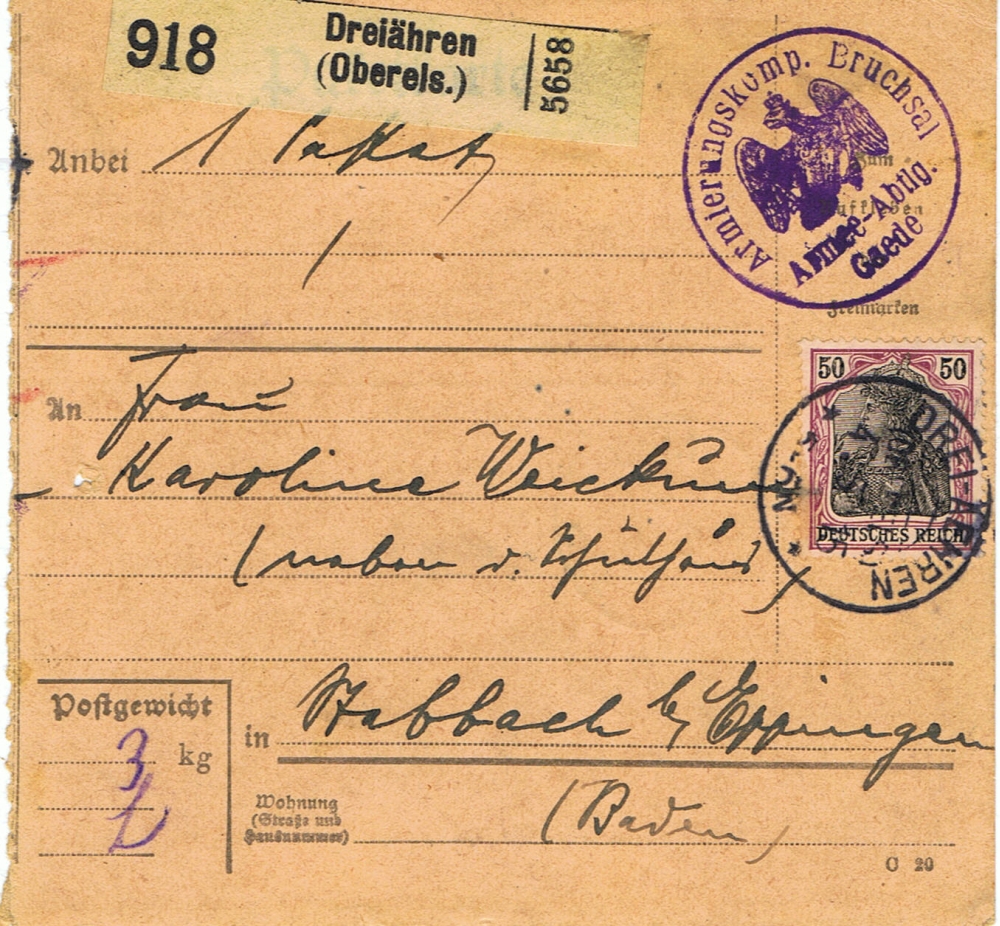 918
Dreiähren
(Oberels.)
5658
Armierungskomp. Bruchsal
Armee-Abtlg.
Gaede
Anbei 1 Paket
Zum
Aufkleben
Freimarken
An Frau
Karoline Weickum
(neben d. Schulhaus)
50 50
DEUTSCHES REICH
DREI-AEHREN
Postgewicht
3 kg
in Stebbach b/ Eppingen
Wohnung
(Straße und
Hausnummer)
(Baden)
C 29